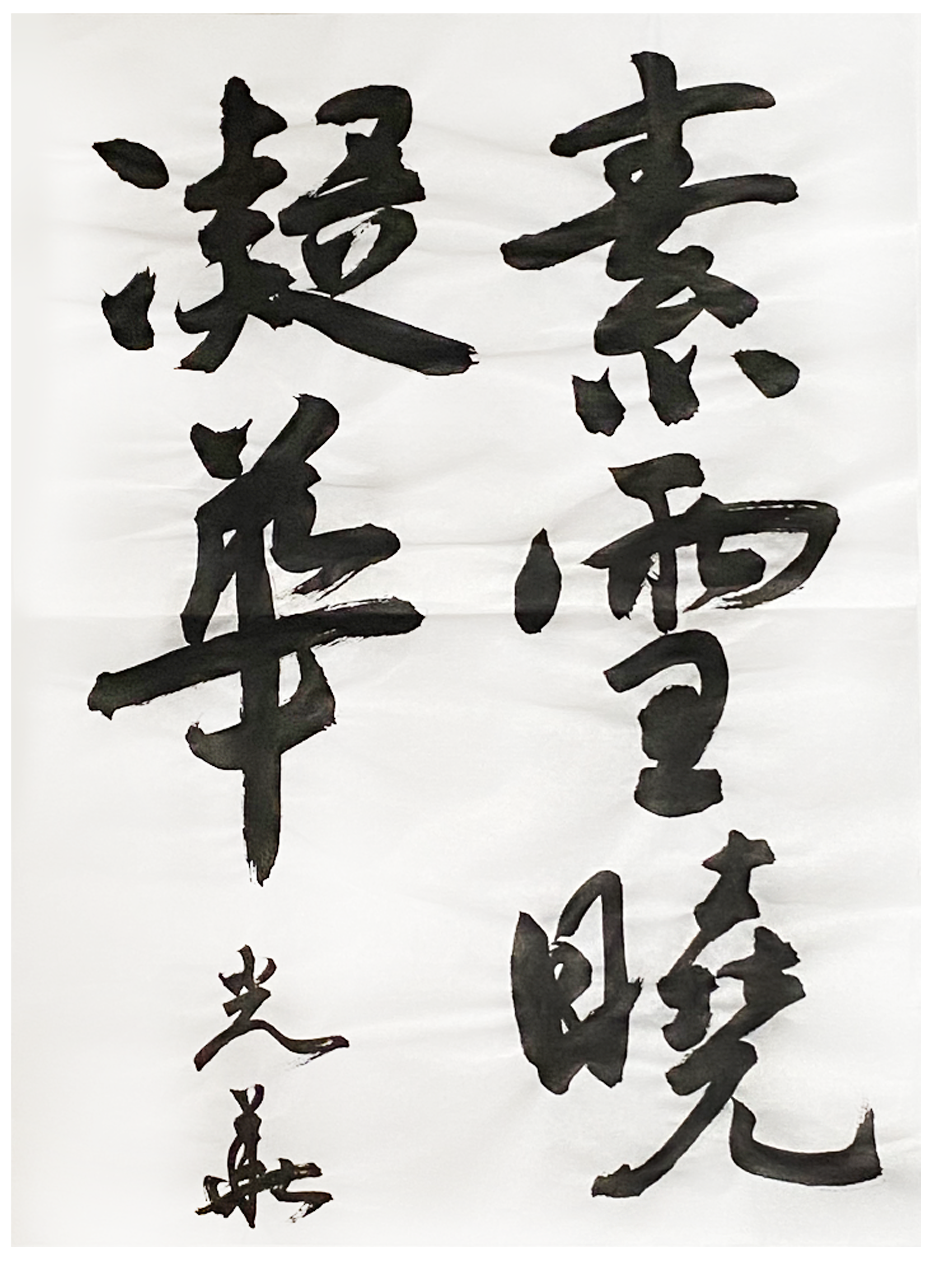 素雪曉
凝華
光華